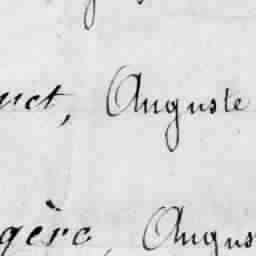 uct, Auguste
gère, Augus